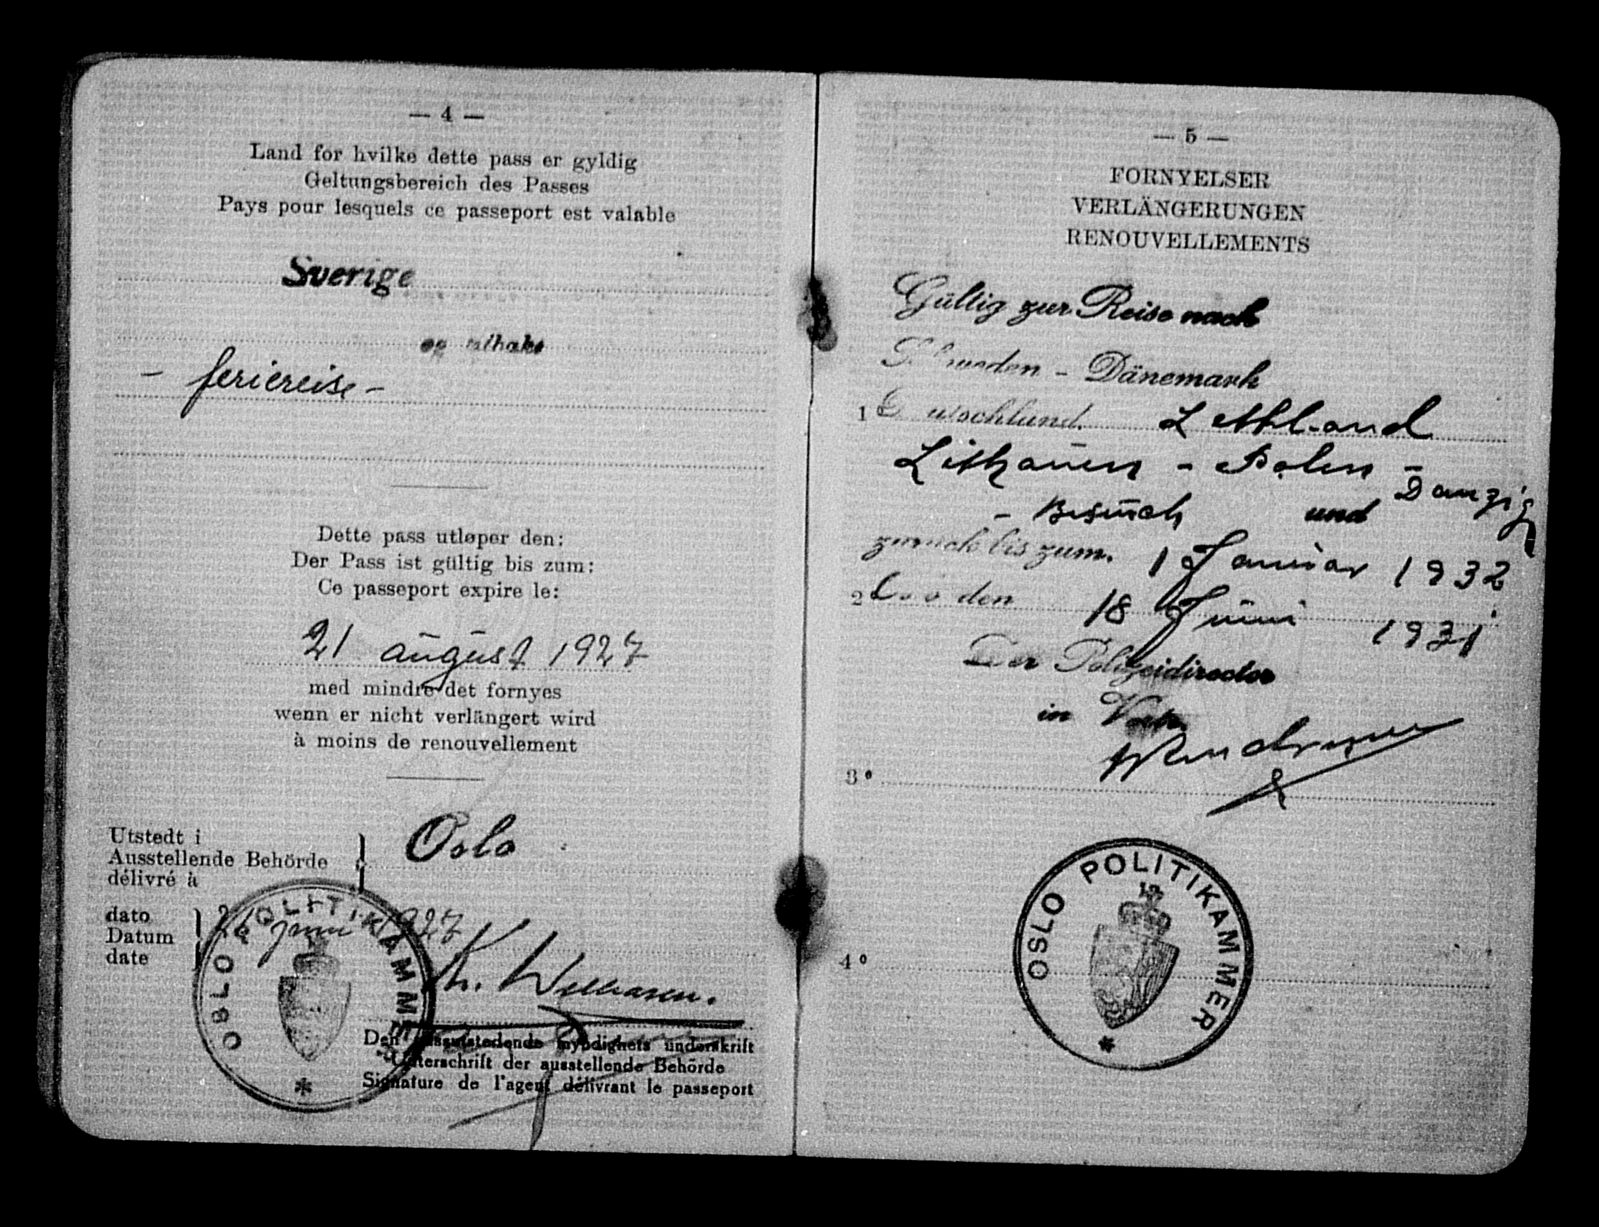 — 4 —
Land for hvilke dette pass er gyldig
Geltungsbereich des Passes
Pays pour lesquels ce passeport est valable
Sverige
og tilbake
- feriereise -
Dette pass utløper den:
Der Pass ist gültig bis zum:
Ce passeport expire le:
21 august 1927
med mindre det fornyes
wenn er nicht verlängert wird
à moins de renouvellement
Utstedt i
Ausstellende Behörde
délivré à
Oslo
dato
Datum
date
juni 1927
OSLO POLITIKAMMER
Den passutstedende myndighets underskrift
Unterschrift der ausstellende Behörde
Signature de l'agent délivrant le passeport
— 5 —
FORNYELSER
VERLÄNGERUNGEN
RENOUVELLEMENTS
Gültig zur Reise nach
Schweden - Dänemark
1° Deutschland. Lettland
Lithauen - Polen -
Danzig
- Besuch und
zurück bis zum. 1 Januar 1932
2° Oslo den 18 Juni 1931
Der Polizeidirector
in
3°
4°
OSLO POLITIKAMMER